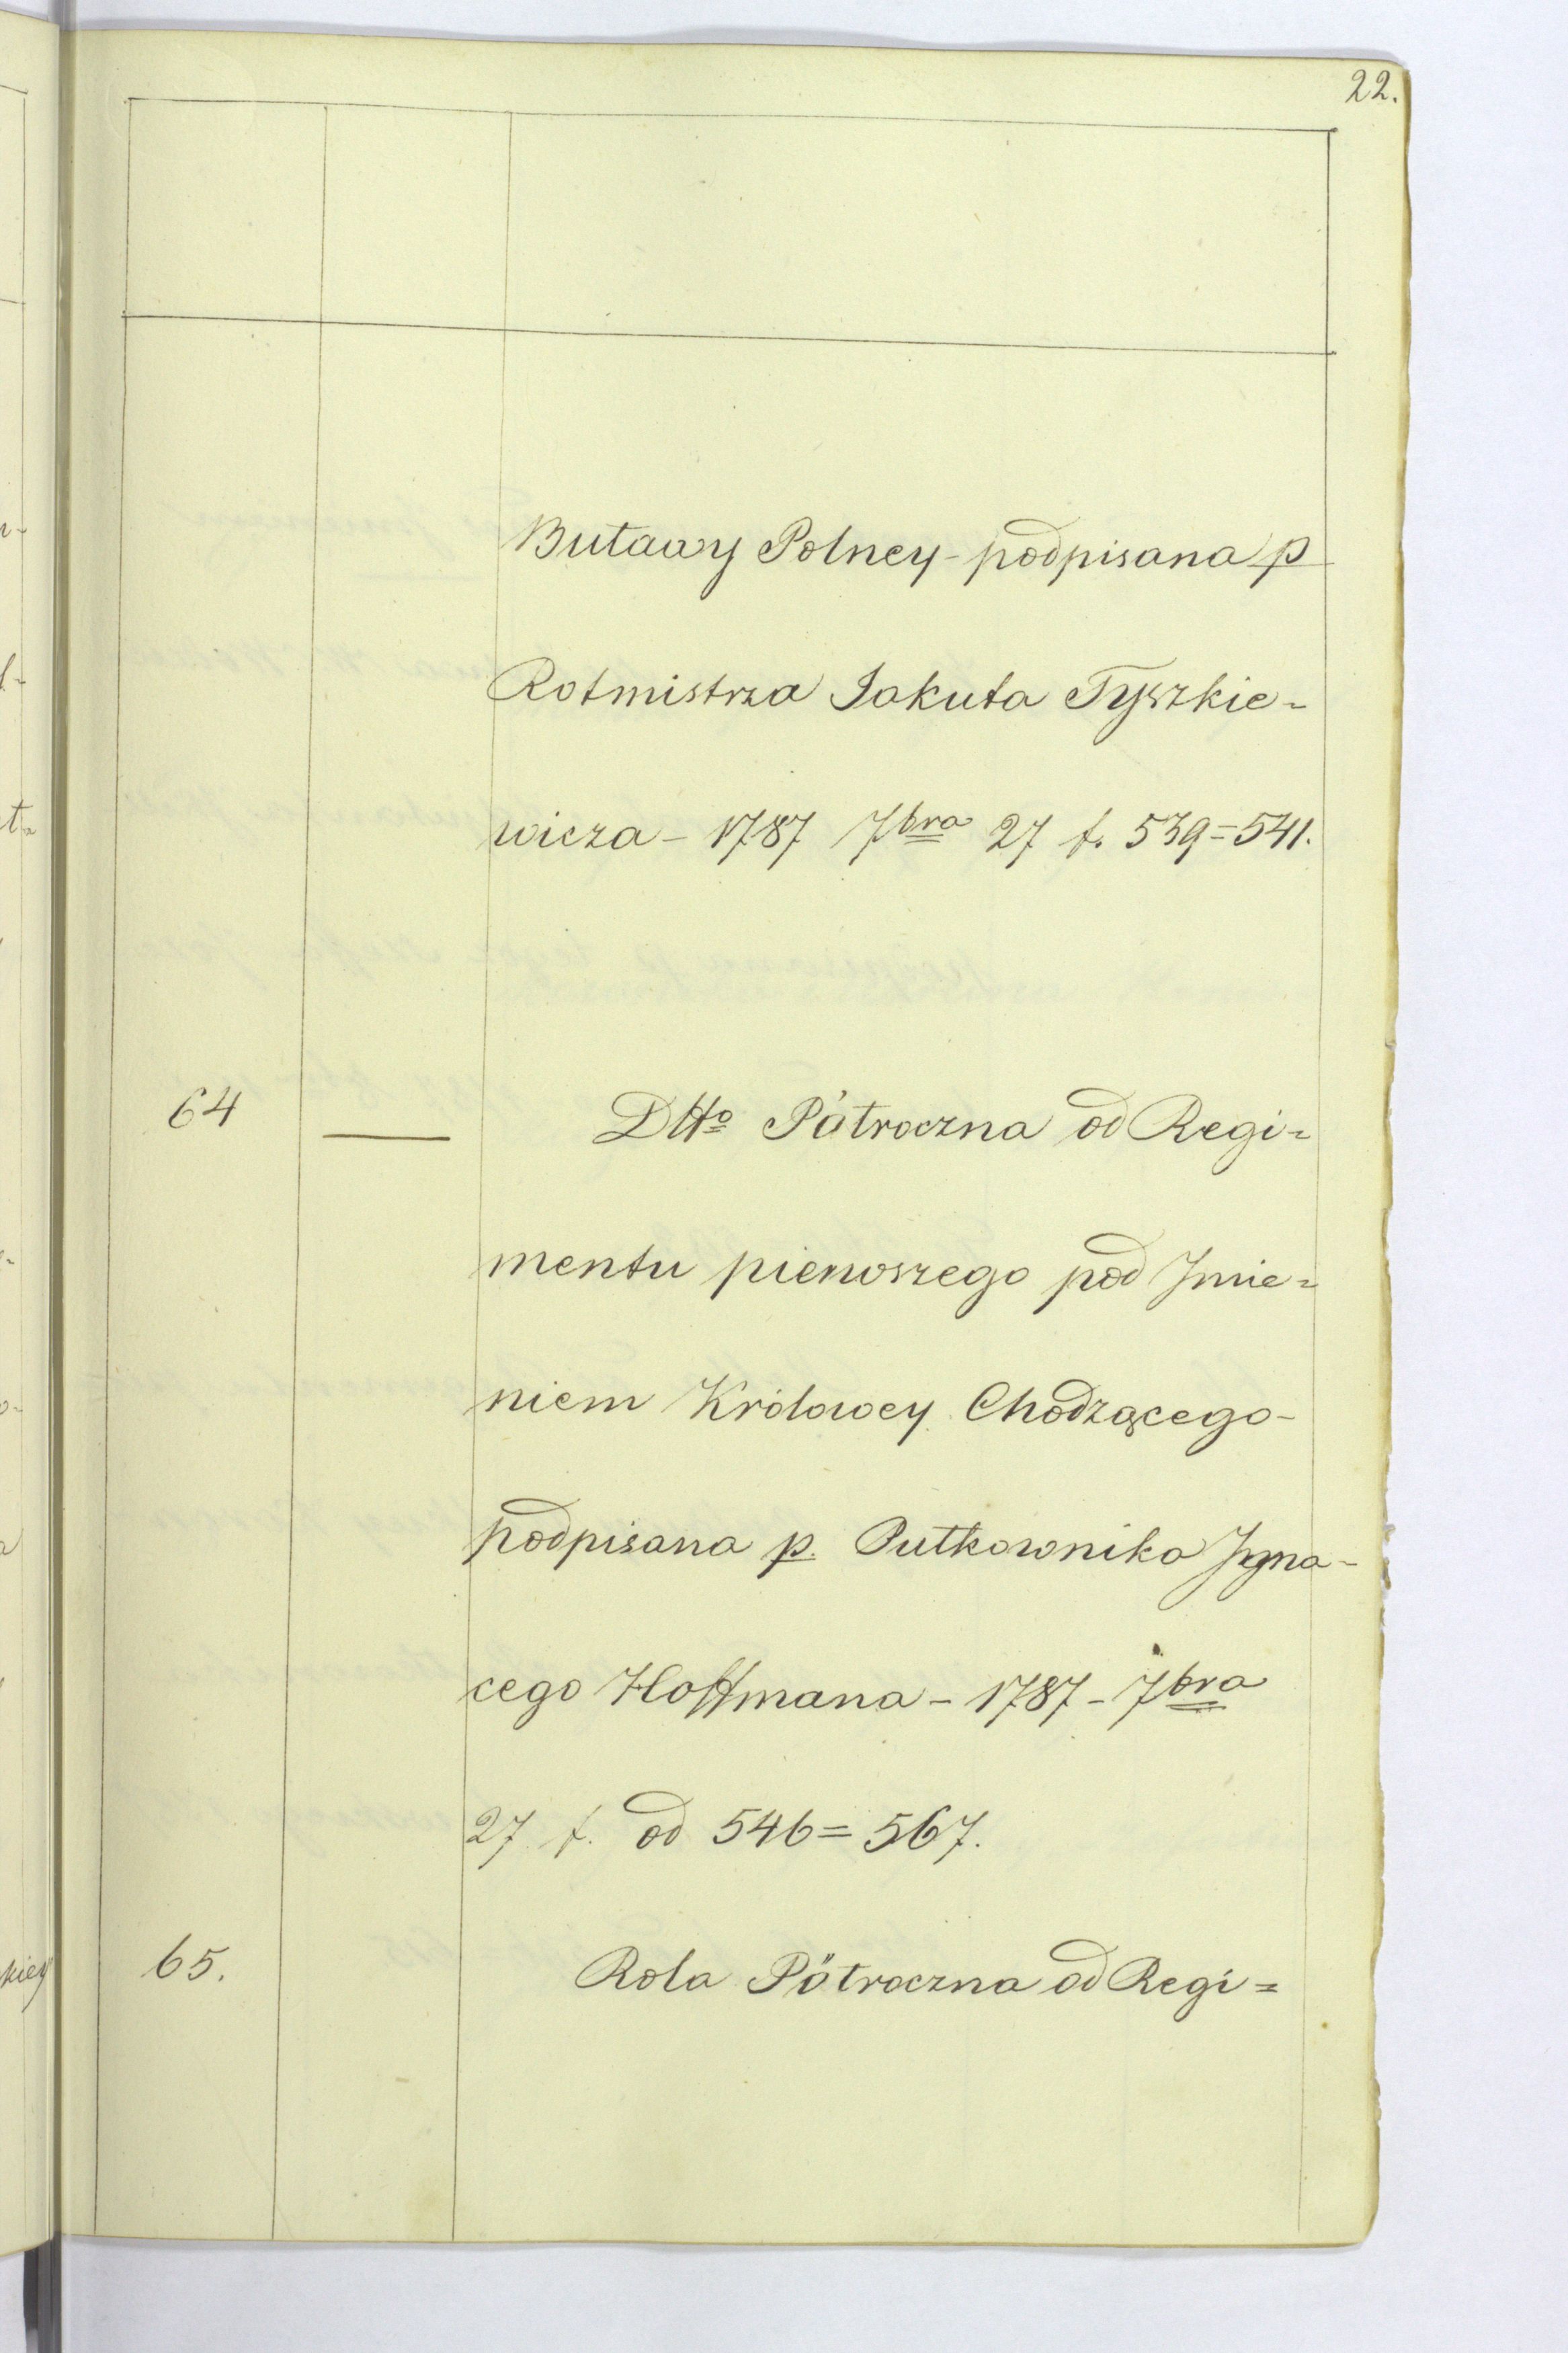 22.
Buławy Polney - podpisana p
Rotmistrza Jakuba Tyszkie=
wicza - 1787 7bra 27 f. 539=541.
64 — Dtto Półroczna od Regi=
mentu pierwszego pod Jmie=
niem Królowey Chodzącego -
podpisana p. Pułkownika Jgna-
cego Hoffmana - 1787 - 7bra
27 f. od 546=567.
65. Rola Półroczna od Regi=